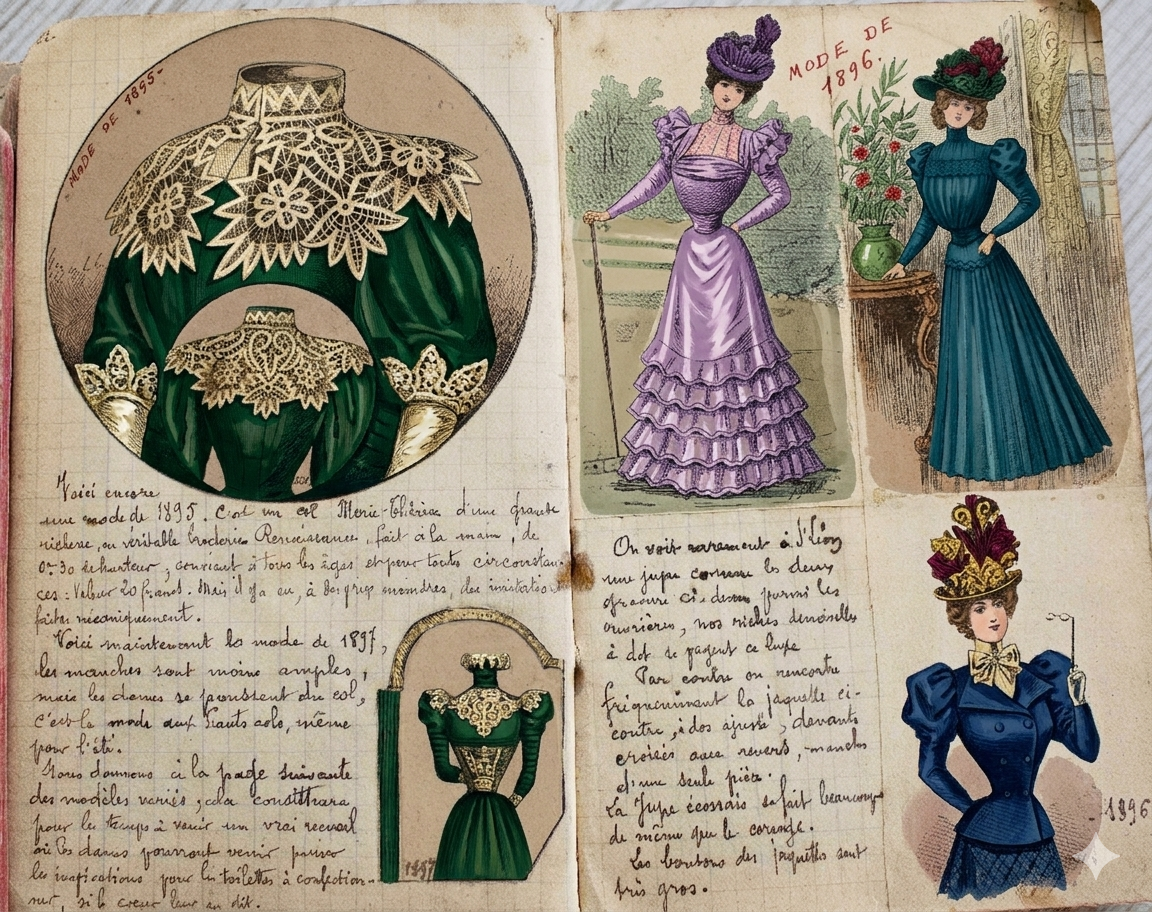 MADE DE 1895-
Voici encore
une mode de 1895. C'est un col Marie-Thérèse d'une grande
richesse, ou véritable broderie Renaissance, fait à la main, de
0m30 de hauteur, convient à tous les âges et pour toutes circonstan-
ces: Valeur 20 francs. Mais il y a eu, à des prix moindres, des imitations
faites mécaniquement.
Voici maintenant la mode de 1897,
les manches sont moins amples,
mais les dames se poussent du col,
c'est la mode aux hauts cols, même
pour l'été.
Nous donnons ci la page suivante
des modèles variés, cela constituera
pour les temps à venir un vrai recueil
où les dames pourront venir puiser
les pour les toilettes à confection-
ner, si le cœur leur en dit.
1897
MODE DE
1896.
On voit rarement à
une jupe comme les deux
gravure ci-dessus parmi les
ouvrières, nos riches demoiselles
à dot se payent ce luxe
Par contre on rencontre
fréquemment la jaquette ci-
contre, à dos ajusté, devants
croisés avec revers, manches
d'une seule pièce.
La Jupe écossais se fait beaucoup
de même que le corsage.
Les boutons des jaquettes sont
très gros.
1896